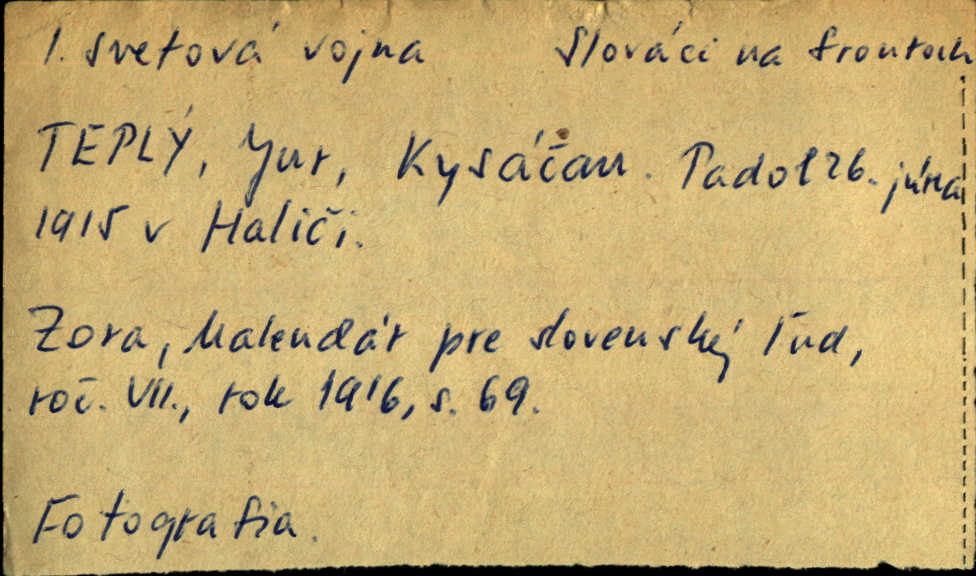 1. svetová vojna Slováci na frontoch
TEPLÝ, Jur, Kysáčan. Padol 26. júna
1915 v Haliči.
Zora, kalendár pre slovenský ľud,
roč. VII., rok 1916, s. 69.
Fotografia.